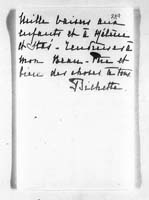 Mille baisers aux
enfants et à Hélène
et - Tendresses à
mon Beau-Père et
bien des choses à tous
Bichette